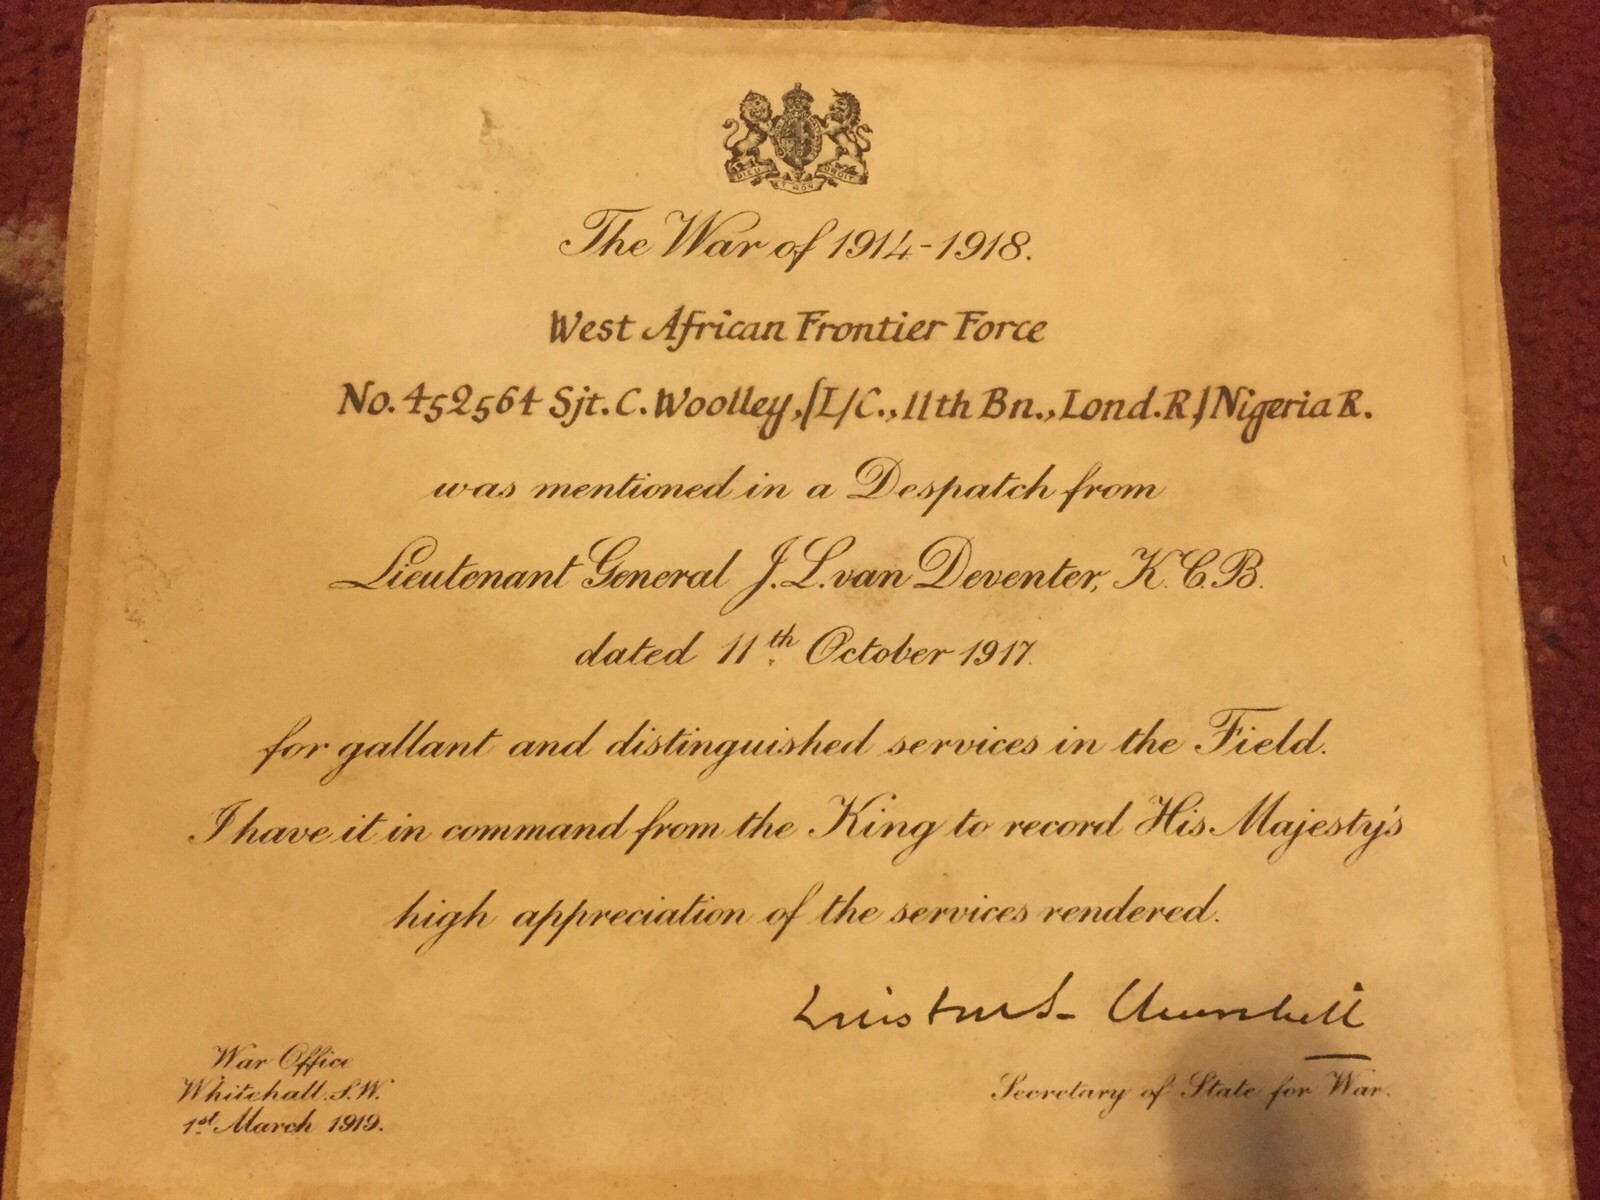 DIEU ET MON DROIT
The War of 1914-1918.
West African Frontier Force
No. 452564 Sjt. C. Woolley, [L/C., 11th Bn., Lond. R.] Nigeria R.
was mentioned in a Despatch from
Lieutenant General J. L. van Deventer, K.C.B.
dated 11th October 1917.
for gallant and distinguished services in the Field.
I have it in command from the King to record His Majesty's
high appreciation of the services rendered.
Winston S. Churchill
Secretary of State for War.
War Office
Whitehall. S.W.
1st March 1919.